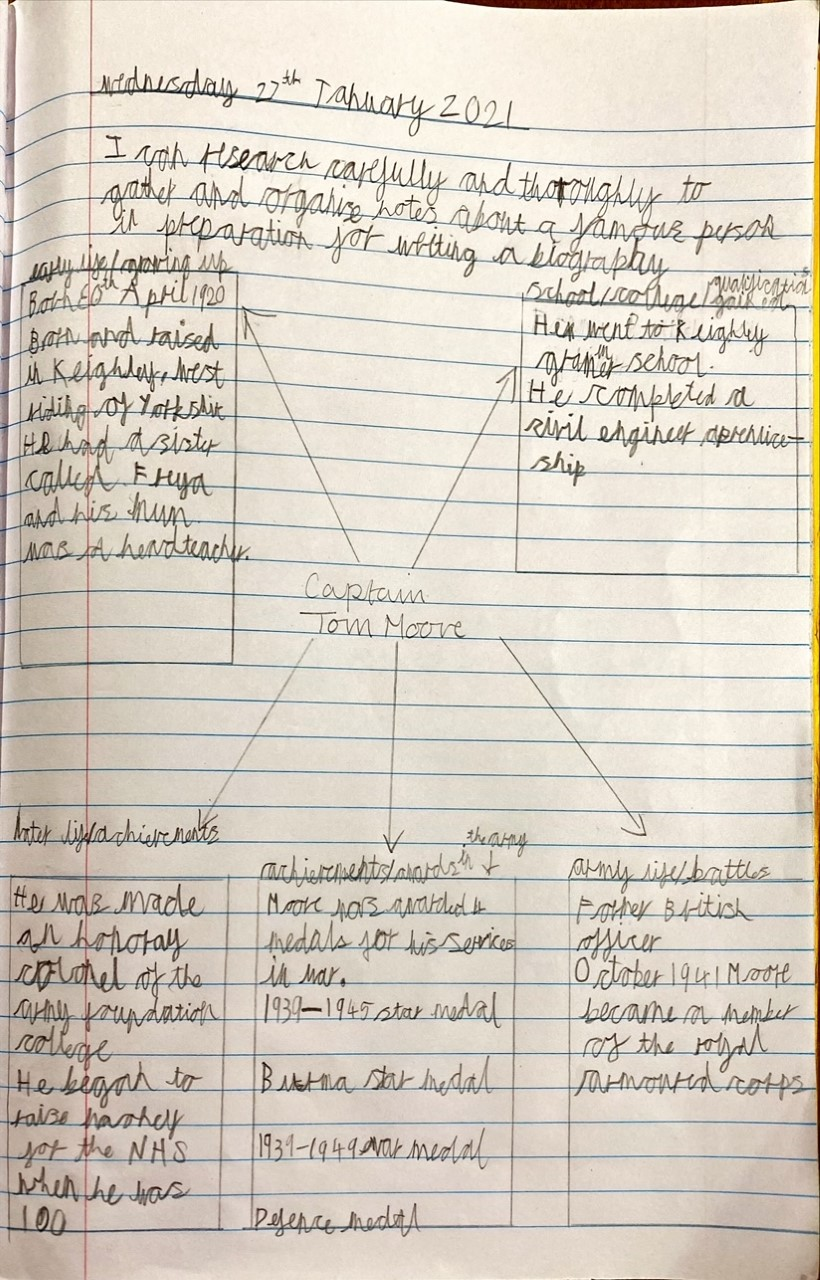 Wednesday 27th January 2021
I can research carefully and thoroughly to
gather and organise notes about a famous person
in preparation for writing a biography
early life/growing up
Born 30th April 1920
Born and raised
in Keighley, West
riding of Yorkshire
He had a sister
called Freya
and his Mum
was a headteacher.
school/college/qualification
gained
He went to Keighley
grammer school.
He completed a
civil engineer aprentice-
ship
Captain
Tom Moore
later life/achievements
He was made
an honoray
colonel of the
army foundation
college
He began to
raise money
for the NHS
when he was
100
achievements/awards in the army
Moore was awarded 4
medals for his services
in war.
1939-1945 star medal
Burma star medal
1939-1949 war medal
Defence medal
army life/battles
Former British
officer
October 1941 Moore
became a member
of the royal
armoured corps